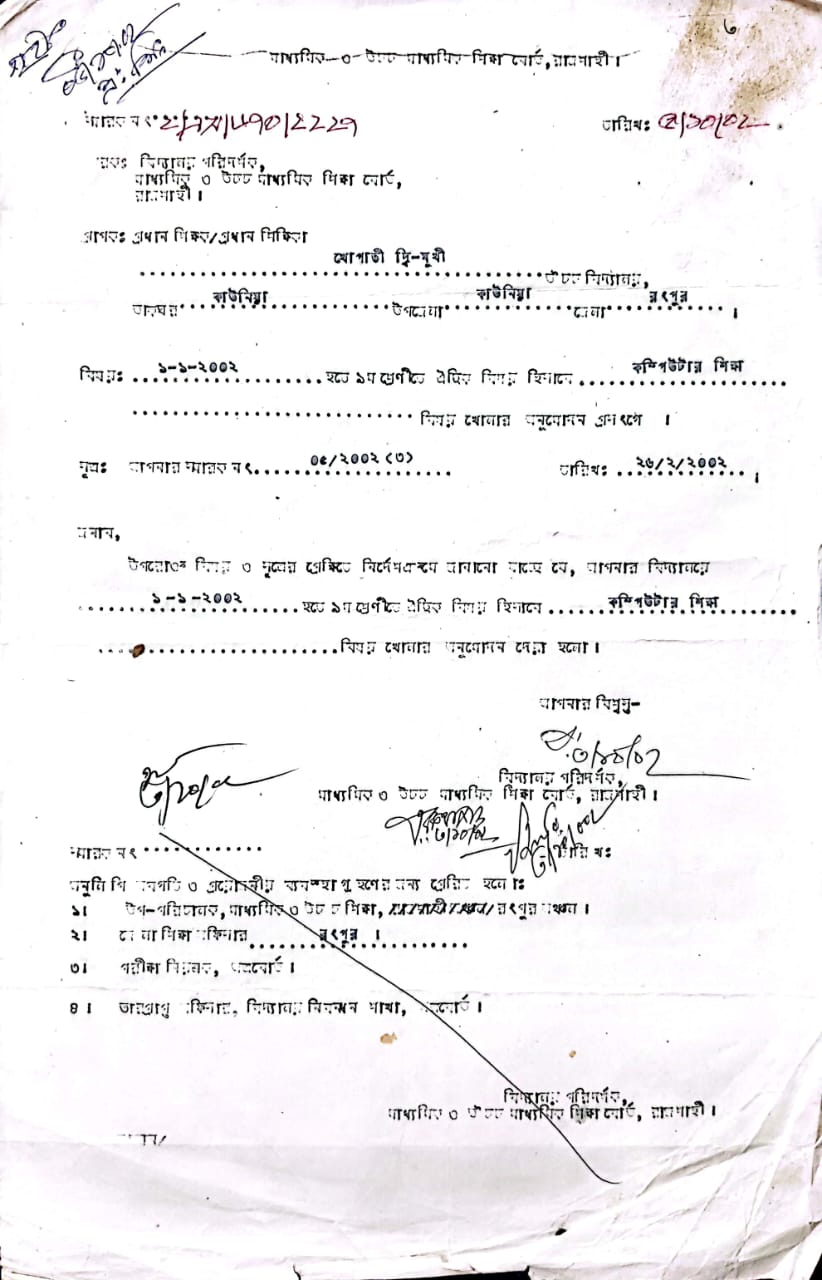 ৬
মাধ্যমিক ও উচ্চ মাধ্যমিক শিক্ষা বোর্ড, রাজশাহী।
স্মারক নং
তারিখঃ ৫/১০/০২
প্রেরকঃ বিদ্যালয় পরিদর্শক,
মাধ্যমিক ও উচ্চ মাধ্যমিক শিক্ষা বোর্ড,
রাজশাহী।
প্রাপকঃ প্রধান শিক্ষক/প্রধান শিক্ষিকা
খোপাতী দ্বি-মূখী
উচ্চ বিদ্যালয়,
ডাকঘর কাউনিয়া উপজেলা কাউনিয়া জেলা রংপুর ।
বিষয়ঃ ১-১-২০০২ হতে ৯ম শ্রেণীতে ঐচ্ছিক বিষয় হিসাবে কম্পিউটার শিক্ষা
বিষয় খোলার অনুমোদন প্রসংগে ।
সূত্রঃ আপনার স্মারক নং ০৫/২০০২ (৩) তারিখঃ ২৬/২/২০০২ ।
জনাব,
উপরোক্ত বিষয় ও সূত্রের প্রেক্ষিতে নির্দেশক্রমে জানানো যাচ্ছে যে, আপনার বিদ্যালয়ে
১-১-২০০২ হতে ৯ম শ্রেণীতে ঐচ্ছিক বিষয় হিসাবে কম্পিউটার শিক্ষা
বিষয় খোলার অনুমোদন দেয়া হলো।
আপনার বিশ্বস্ত-
৩/১০/০২
বিদ্যালয় পরিদর্শক,
মাধ্যমিক ও উচ্চ মাধ্যমিক শিক্ষা বোর্ড, রাজশাহী।
স্মারক নং
তারিখঃ
অনুলিপি অবগতি ও প্রয়োজনীয় ব্যবস্থা গ্রহণের জন্য প্রেরিত হলোঃ
১। উপ-পরিচালক, মাধ্যমিক ও উচ্চ শিক্ষা, রংপুর অঞ্চল।
২। জেলা শিক্ষা অফিসার রংপুর ।
৩। পরীক্ষা নিয়ন্ত্রক, অত্রবোর্ড।
৪। ভারপ্রাপ্ত অফিসার, বিদ্যালয় নিবন্ধন শাখা, অত্রবোর্ড।
বিদ্যালয় পরিদর্শক,
মাধ্যমিক ও উচ্চ মাধ্যমিক শিক্ষা বোর্ড, রাজশাহী।